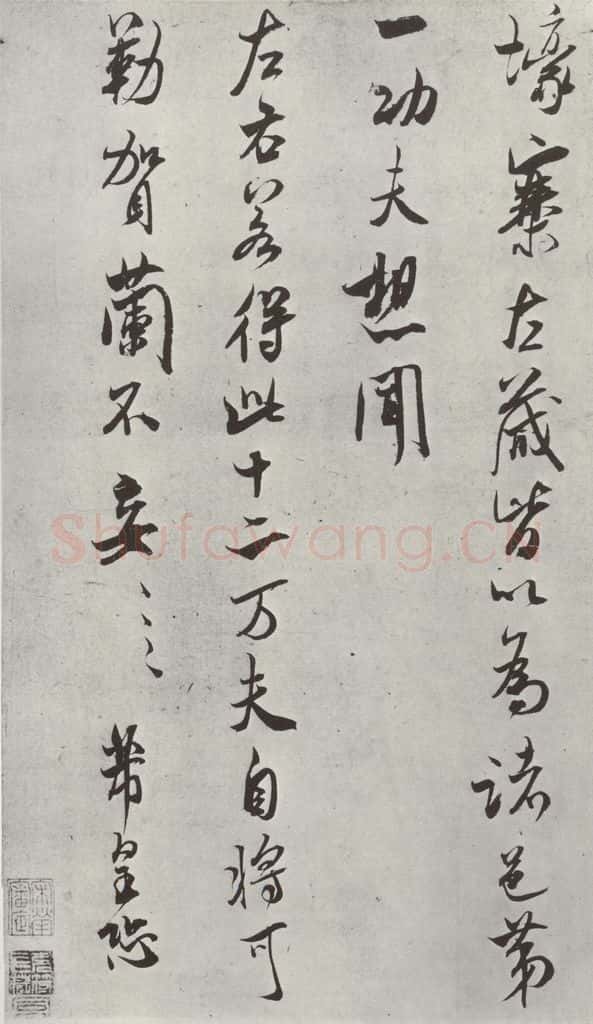 壕寨左藏皆以為諸邑第
一功夫想聞
左右若得此十二万夫自將可
勒賀蘭不妄〻〻芾皇恐
Shufawang.CN